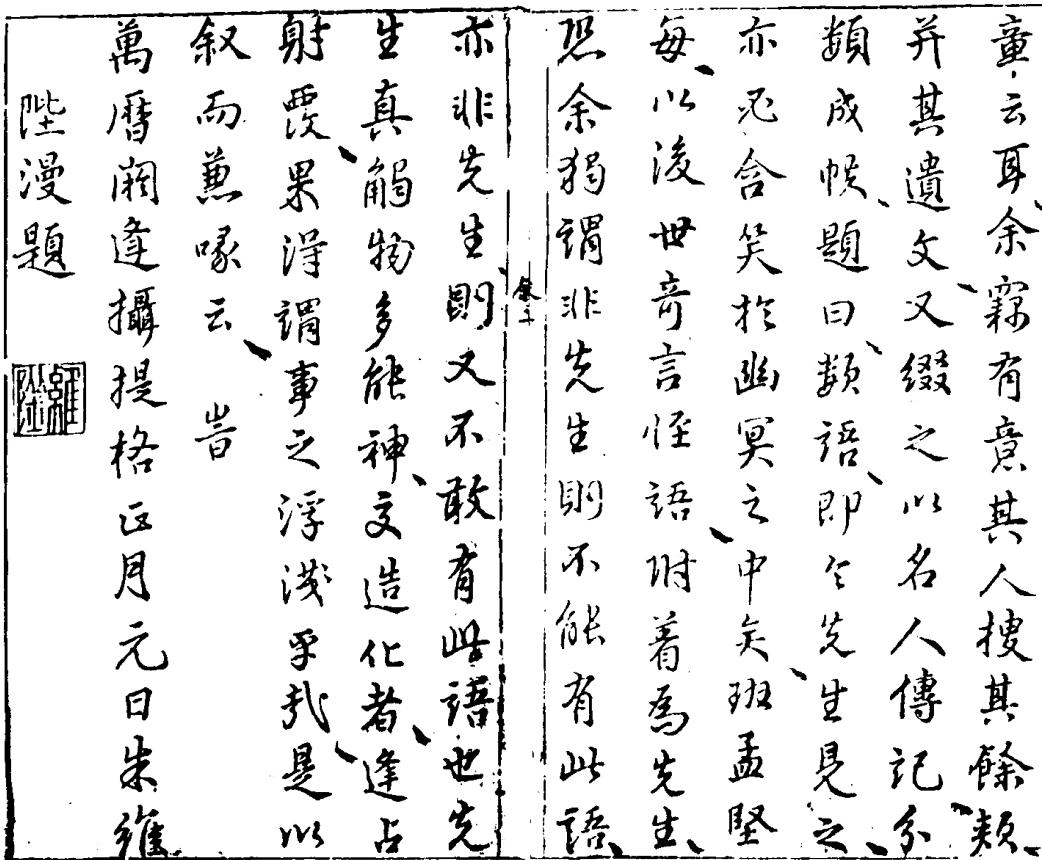 童云耳余竊有意其人搜其餘頰
并其遺文又綴之以名人傳記分
類成帙題曰類語即令先生見之
亦必含笑於幽冥之中矣班孟堅
每以後世奇言怪語附着為先生
恐余獨謂非先生則不能有此語
亦非先生則又不敢有此語也先
生真觸物多能神交造化者逢占
射覆果得謂事之浮淺乎哉是以
叙而兼喙云 旹
萬曆閼逢攝提格正月元日朱維
陛漫題
維陛